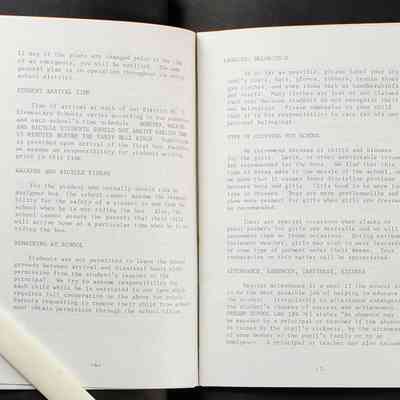 of an emergency, you will be notified. The same
general plan is in operation throughout the entire
school district.
STUDENT ARRIVAL TIME
Time of arrival at each of our District No. 4
Elementary Schools varies according to bus schedules
and each school's time schedule. HOWEVER, WALKING
AND BICYCLE STUDENTS SHOULD NOT ARRIVE EARLIER THAN
MINUTES BEFORE THE TARDY BELL RINGS. Supervision
is provided upon arrival of the first bus. Parents
assume responsibility for students arriving
prior to this time.
WALKERS AND BICYCLE RIDERS
For the student who normally should ride an
assigned bus, the school cannot assume the responsibility
for the safety of a student to and from
school when he is not riding the bus. Also, the
school cannot assure the parents that their child
will arrive home at a particular time when he is
riding the bus.
REMAINING AT SCHOOL
Students are not permitted to leave the school
grounds between arrival and dismissal hours without
permission from the student's teacher or the
principal. We try to assume responsibility for
each child while he is entrusted to our care which
requires full cooperation on the above two points.
Parents requesting to remove their child from school
must obtain permission through the school office
LABELING BELONGINGS
As far as possible, please label your
coats, hats, gloves, rubbers, tennis shoes,
gym clothes, and even items such as handkerchiefs
and scarfs. Many clothes are lost or not claimed
each year because students do not recognize their
own belongings. Please emphasize to your child
that it is his responsibility to care for his own
personal belongings.
TYPE OF CLOTHING FOR SCHOOL
We recommend dresses or skirts and blouses
for the girls. Levis, or other serviceable trousers
are recommended for the boys. We find that this
type of dress adds to the morale of the school, as
we want that it causes fewer discipline problems
between boys and girls. Girls tend to be more lady
like in dresses. They are more gentlemanly and
show more respect for girls when girls are dressed
as recommended.
There are special occasions when slacks or
pant dresses for girls are desirable and we will
honor them on those occasions. During extreme
inclement weather, girls may wish to wear leotards
or some type of garment under their dress. Your
cooperation on this matter will be appreciated.
ATTENDANCE, ABSENCES, TARDINESS, EXCUSES
Regular attendance is a must if the school is
to do the best possible job of helping to educate
the student. Irregularity in attendance endangers
the student's chances of success and achievement.
OREGON SCHOOL LAW states "An absence may
be excused by a principal or teacher if the absence
is caused by the pupil's sickness, by the sickness
of some member of the pupil's family or by an
emergency. A principal or teacher may also excuse